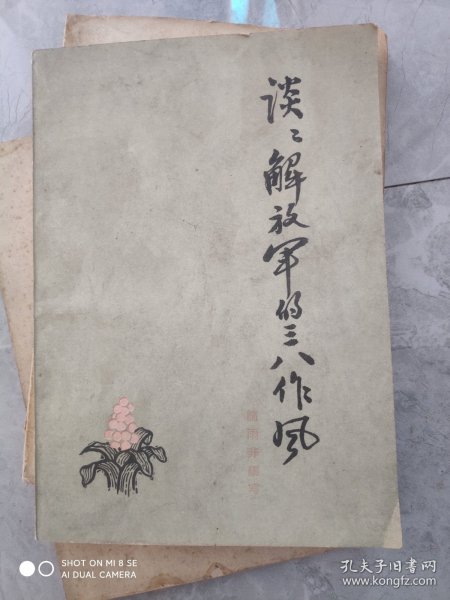 谈〻解放军的三八作风
SHOT ON MI 8 SE
AI DUAL CAMERA
孔夫子旧书网
www.kongfz.com